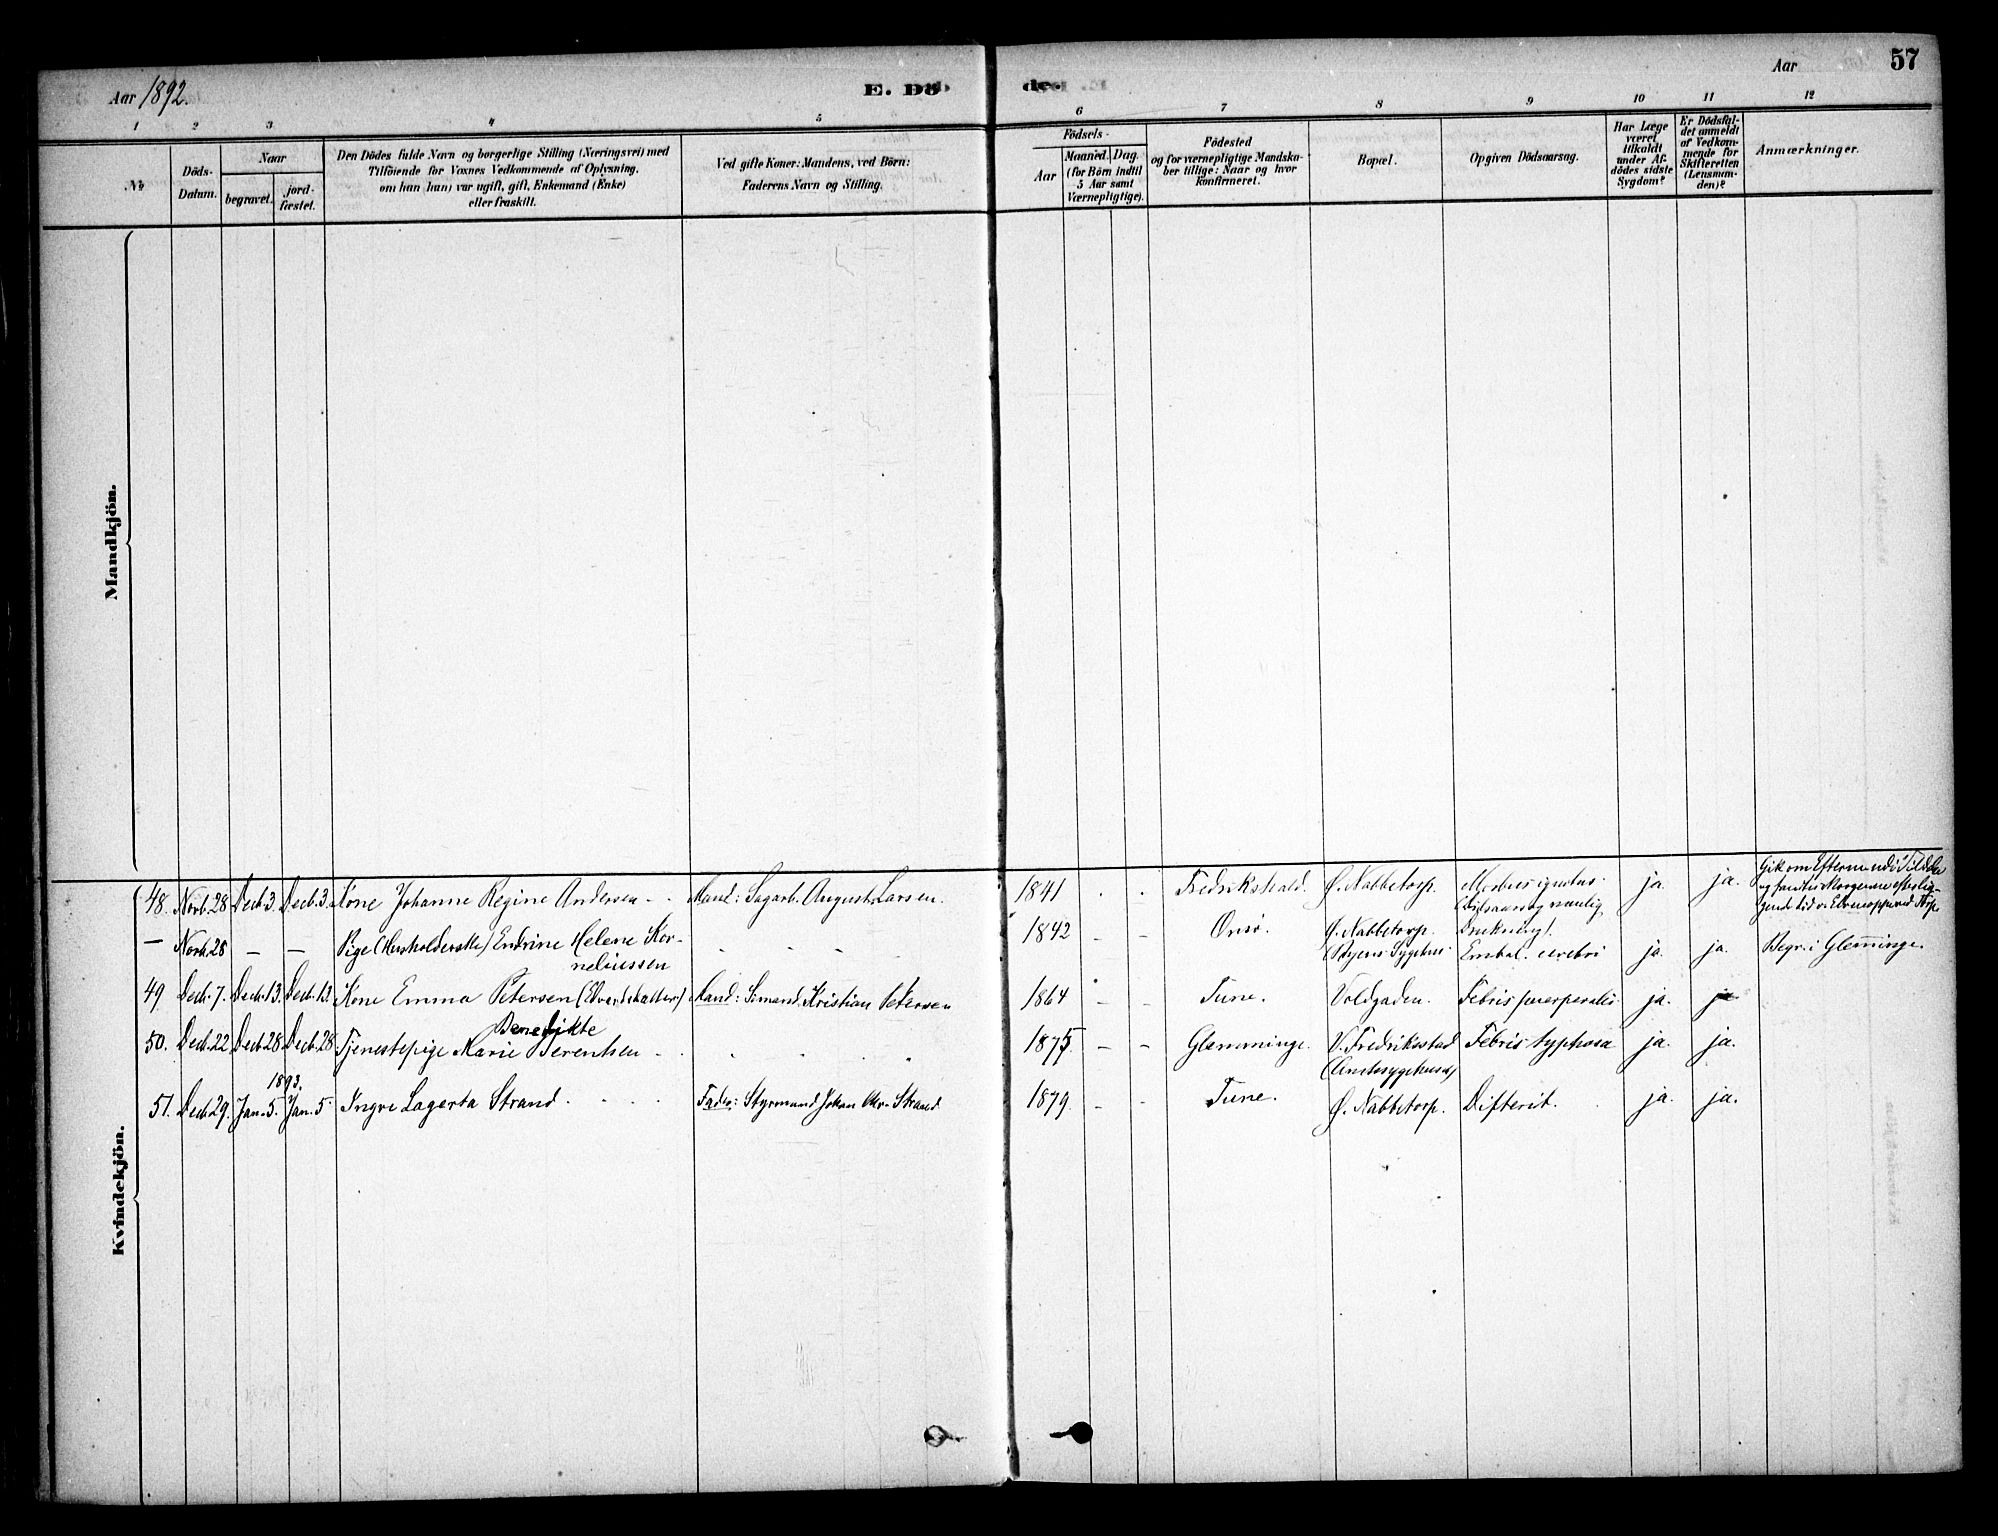 Aar 1892.
E. Dö
de.
Aar
57
1 2 3 4 5 6 7 8 9 10 11 12
No
Döds-
Datum.
Naar
begravet.
jord-
fæstet.
Den Dödes fulde Navn og borgerlige Stilling (Næringsvei) med
Tilföiende for Voxnes Vedkommende af Oplysning,
om han (hun) var ugift, gift, Enkemand (Enke)
eller fraskilt.
Ved gifte Koner: Mandens, ved Börn:
Faderens Navn og Stilling.
Födsels-
Aar
Maaned. Dag.
(for Börn indtil
5 Aar samt
Værnepligtige).
Födested
og for værnepligtige Mandska-
ber tillige: Naar og hvor
konfirmeret.
Bopæl.
Opgiven Dödsaarsag.
Har Læge
været
tilkaldt
under Af-
dödes sidste
Sygdom?
Er Dödsfal-
det anmeldt
af Vedkom-
mende for
Skifteretten
(Lensman-
den)?
Anmærkninger.
Mandkjön.
Kvindekjön.
48. Novb. 28 Decb. 3. Decb. 3. Kone Johanne Regine Andersen Mand: Sagarb. August Larsen. 1841 Fredrikshald. Ø. Nabbetorp. Morbus ignotus
(Dödsaarsag nemlig
Drukning). ja. ja.
Gik om Efterm. ud i
— Novb. 28 — — Pige (Husholderske) Endrine Helene Kor-
neliussen 1842 – – Onsø. Ø. Nabbetorp.
Embol. cerebri ja. ja. Begr. i Glemminge.
49. Decb. 7. Decb. 13. Decb. 13 Kone Emma Petersen Mand: Sømand Kristian Petersen 1864 – – Tune. Voldgaden. Febris puerperalis ja. ja
50. Decb. 22 Decb. 28. Decb. 28. Tjenestepige Marie Benedikte Berentsen 1875. – – Glemminge. V. Fredriksstad
(Amtssygehuset) Febris typhosa ja. ja.
1893.
51. Decb. 29. Jan. 5. Jan. 5 Ingre Lagerta Strand Fader: Styrmand Johan Chr. Strand 1879. – – Tune. Ø. Nabbetorp. Difterit. ja. ja.